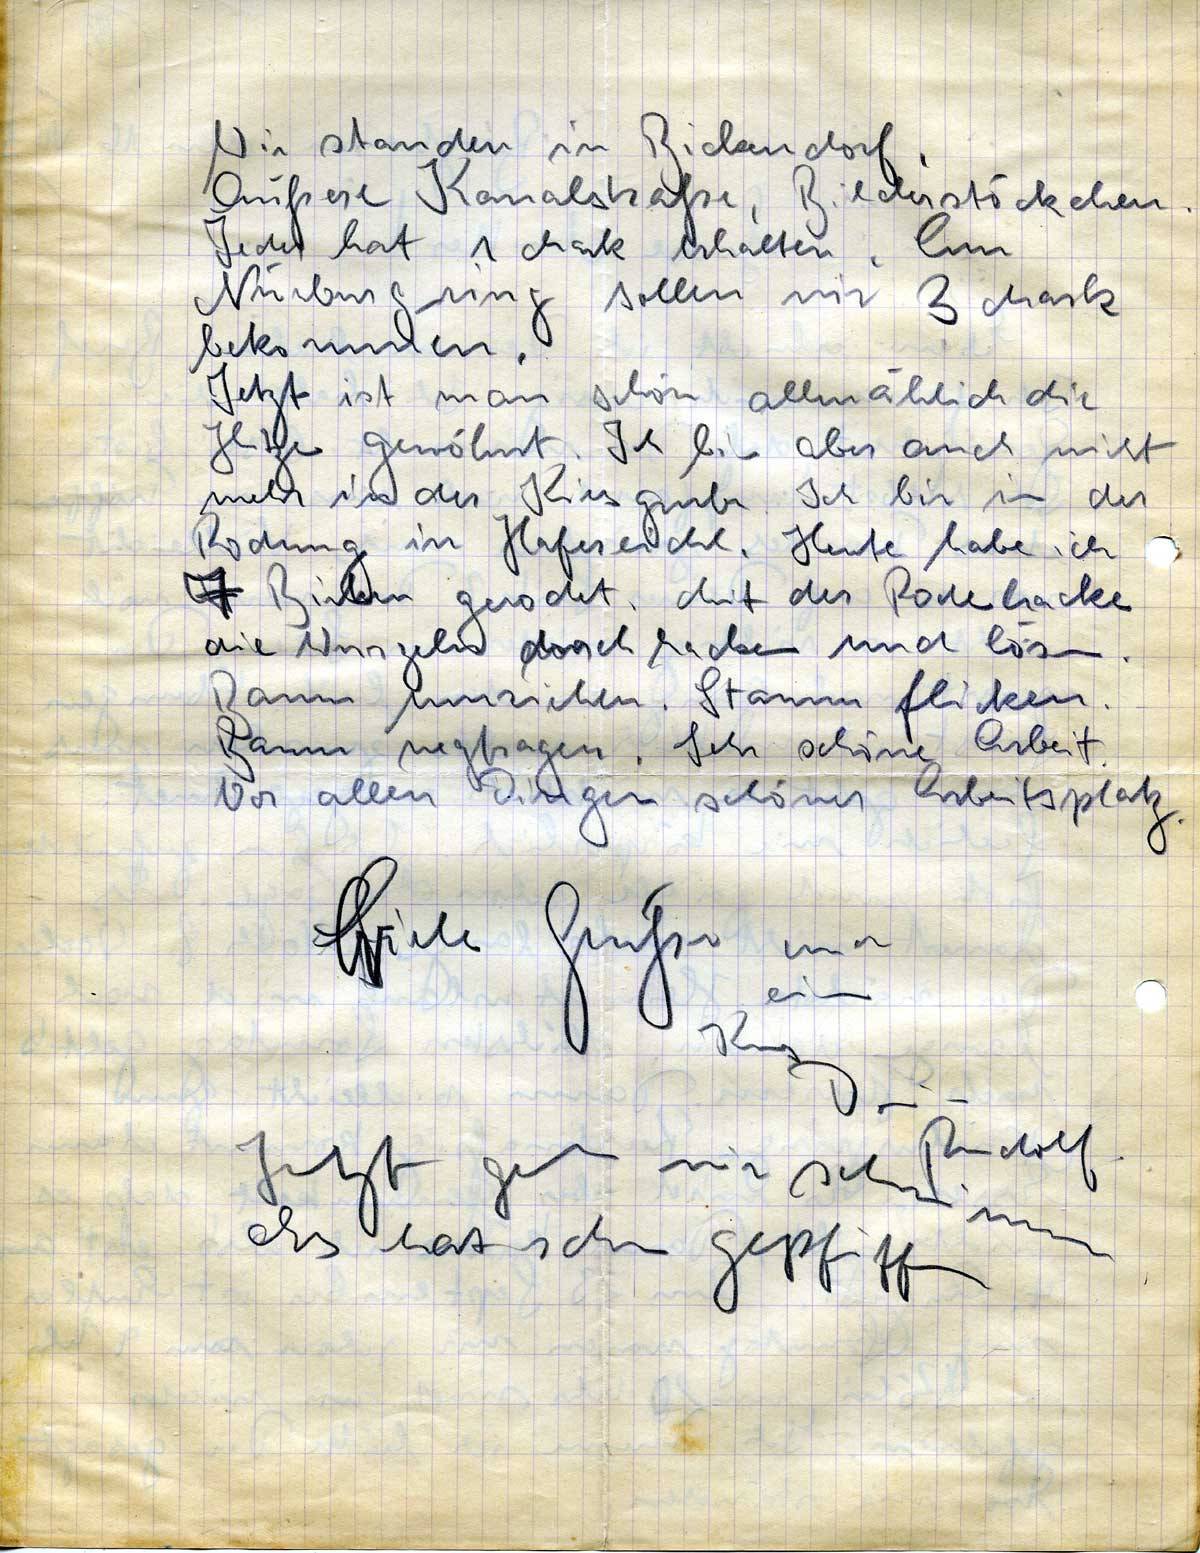 Wir standen in Bickendorf,
Äußere Kanalstraße, Bilderstöckchen.
Jeder hat 1 Mark erhalten. Am
Nürburgring sollen wir 3 Mark
bekommen.
Jetzt ist man schön allmählich die
Hitze gewöhnt. Ich bin aber auch nicht
mehr in der Kiesgrube. Ich bin in der
Rodung in Haferscidl. Heute habe ich
7 Birken gerodet. Mit der Rodehacke
die Wurzeln durchhacken und lösen.
Baum umziehen. Stamm flicken.
Baum wegtragen. Sehr schöne Arbeit.
Vor allen Dingen schöner Arbeitsplatz.
Viele Grüße und
ein
Kuß
Dein
Rudolf.
Jetzt gehn wir schwimmen
Es hat schon gepfiffen